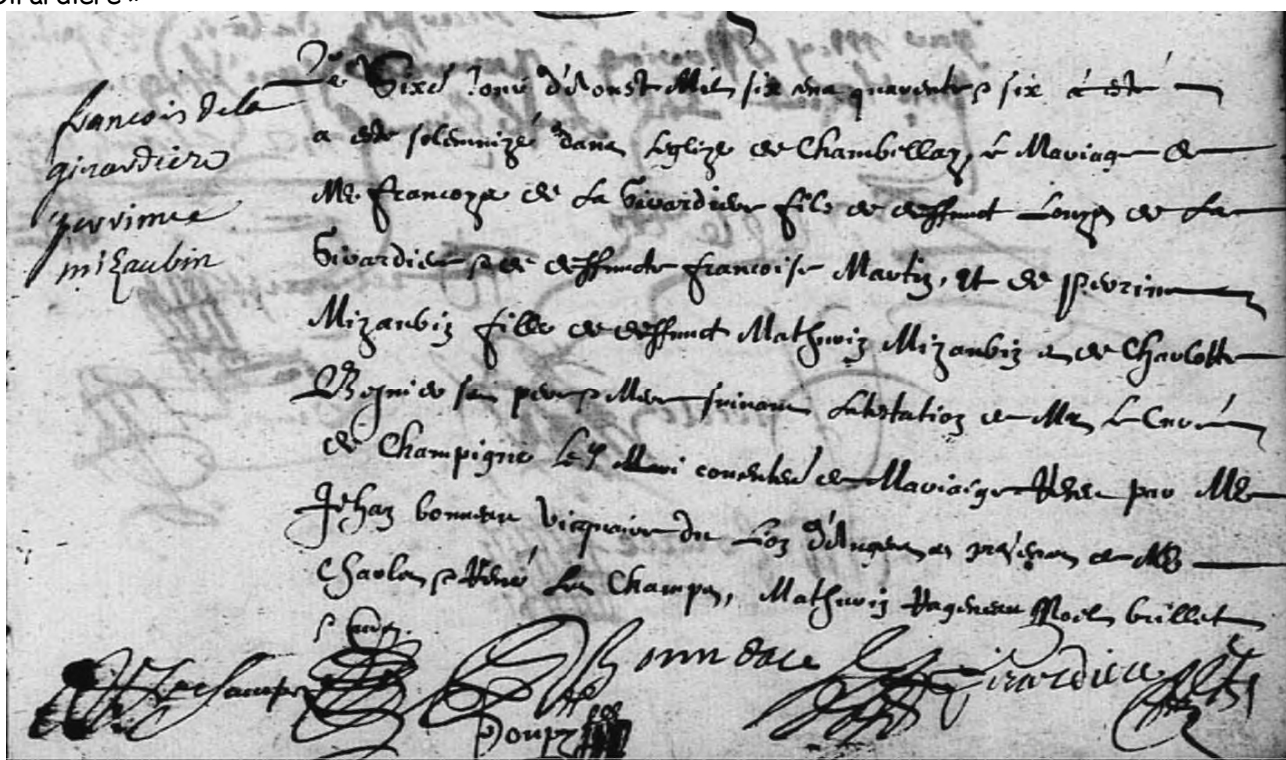 francois de la
girardiere
perrinne
mizaubin
Le Sixe Jour d'Aoust Mil six cens quarente & six à esté
a este solemnizé dans Leglize de Chambellay, le Mariage de
Me Francoys de La Girardiere fils de deffunct Louys de La
Girardiere & de deffuncte francoise Martin, et de Perrinne
Mizaubin fille de deffunct Mathurin Mizaubin et de Charlotte
ses pere & Mere suivant Latestation de Mr Le Curé
de Champigné Le Mariaige par Me
Jehan bonneau vicquaire du Lion d'Angers en presence de Me
Charles & René Les Champs, Mathurin Rageneau Noel brillet
& autres
Bonneau
Girardiere
Deschamps